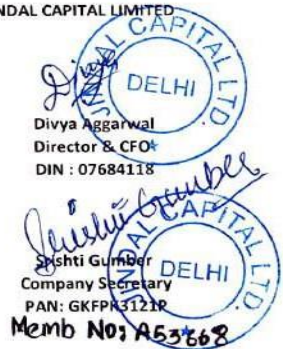 NDAL CAPITAL LIMITED
JINDAL CAPITAL LTD.
DELHI
Divya
Divya Aggarwal
Director & CFO
DIN : 07684118
Srishti Gumber
JINDAL CAPITAL LTD.
DELHI
Srishti Gumber
Company Secretary
PAN: GKFPK3121P
Memb No: A53668